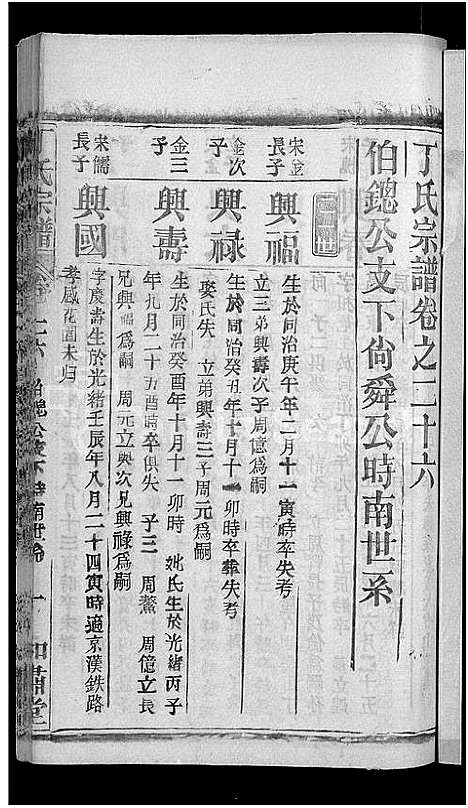 丁氏宗譜卷之二十六
伯鏓公支下尚舜公時南世系
二世
宋金長子
興福
生於同治庚午年二月十一寅時卒失考
立三弟興壽次子周億為嗣
金次子
興祿
生於同治癸丑年十月十一卯時卒葬失考
娶氏失 立弟興壽三子周元為嗣
金三子
興壽
生於同治癸酉年十月十一卯時 妣氏生於光緒丙子
年九月二十五酉時卒俱失 子三 周鰲 周億立長
兄興福為嗣 周元立與次兄興祿為嗣
宋儒長子
興國
字慶壽生於光緒壬辰年八月二十四寅時適京漢鉄路
孝感花園未归
氏宗譜
卷二十六
伯鏓公支下時南世系
一